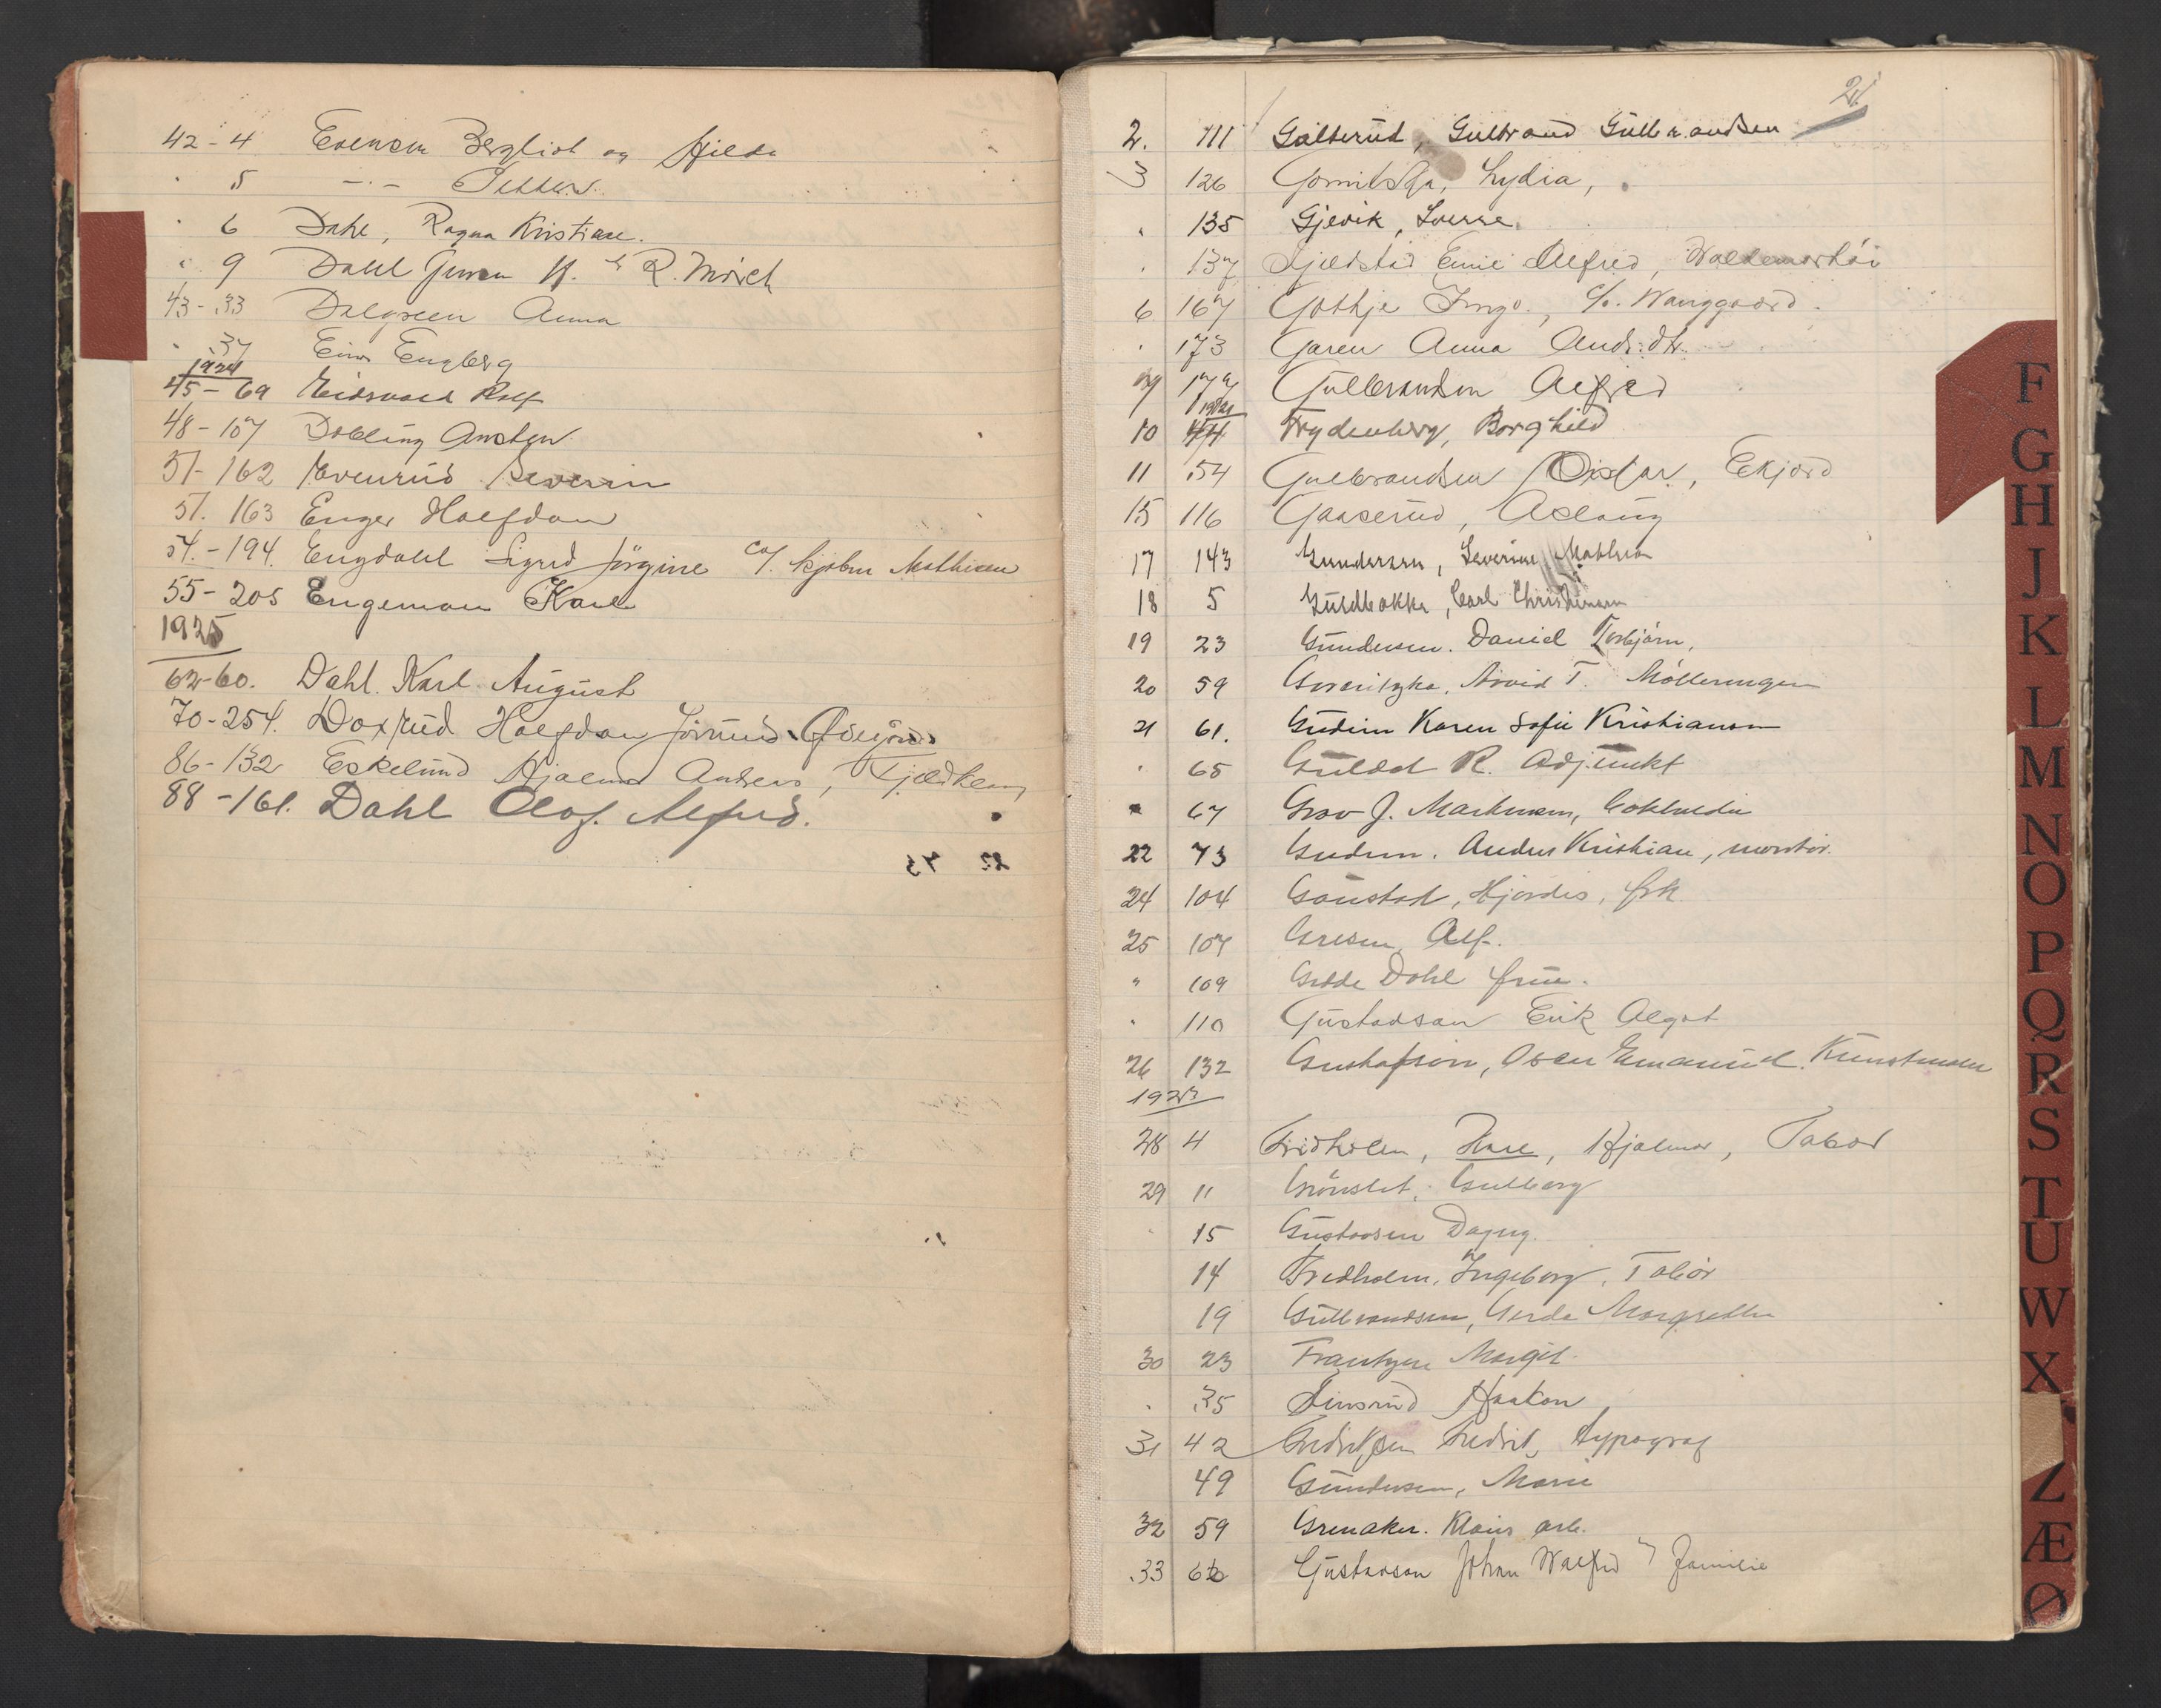 42-4 Evensen Bergliot og Hilda
" 5 -"- Petter
" 6 Dahl, Ragna Kristiane.
" 9 Dahl K. & R. Mörch
43-33 Dalgreen Anna
" 37 Einar Engberg
1924
45-69 Eidsvold Rolf
48-107 Dobling Ansten
51-162 Evenrud Severin
51. 163 Enger Halfdan
54.-194. Engdahl Sigrid Jörgine c/. Mathisen
55-205 Engeman Karl
1925
62-60. Dahl. Karl August
70-254. Doxrud Halfdan
86-132 Eskelund Hjalmar Anders,
88-161. Dahl Olaf. Alfred.
21
2. 111 Galterud, Gulbrand Gulbrandsen
3 126 Lydia,
" 135 Gjevik, Sverre.
" 137 Gjeldstad Emil Alfred, Waldemarhöi
6 167 Gothje Inga., c/o. Wanggaard.
" 173 Garen Anna Andr. dtr.
7 177 Gulbrandsen Alfred
1921
10 44 Frydenberg, Borghild
11 54 Gulbrandsen Oskar, Ekjord
15 116 Gaaserud, Aslaug
17 143 Gundersen, Severine Mathea
18 5 Guldbakke, Carl Christiansen
19 23 Gundersen. Daniel Torbjörn,
20 59 Arvid T. Möllerungen
21 61. Gudim Karen Sofie Kristiansen
" 65 Guldal R. Adjunkt
" 67 Grav J. Markussen,
22 73 Gudim. Anders Kristian, montör.
24 104 Gaustad, Hjördis, frk.
25 107 Gresen, Alf.
" 109 Gedde Dahl frue.
" 110 Gustavson Erik Algot
26 132 Gustafson, Oscar Emanuel. Kunstmaler
1923
28 4 Fridholm, Karl, Hjalmar, Tabor
29 11 Grönslet, Gulborg
" 15 Gustavsen Dagny.
14 Fredholm, Ingeborg, Tabor
19 Gulbrandsen, Gerda Margrethe
30 23 Frantzen Margit.
" 35 Haakon
31 42 Fredriksen Fredrik, typograf
49 Gundersen, Marie
32 59 Grenaker. Klaus arb.
33 66 Gustavson Johan Walfrid & Familie
F
G
H
J
K
L
M
N
O
P
Q
R
S
T
U
W
X
Z
Æ
Ø